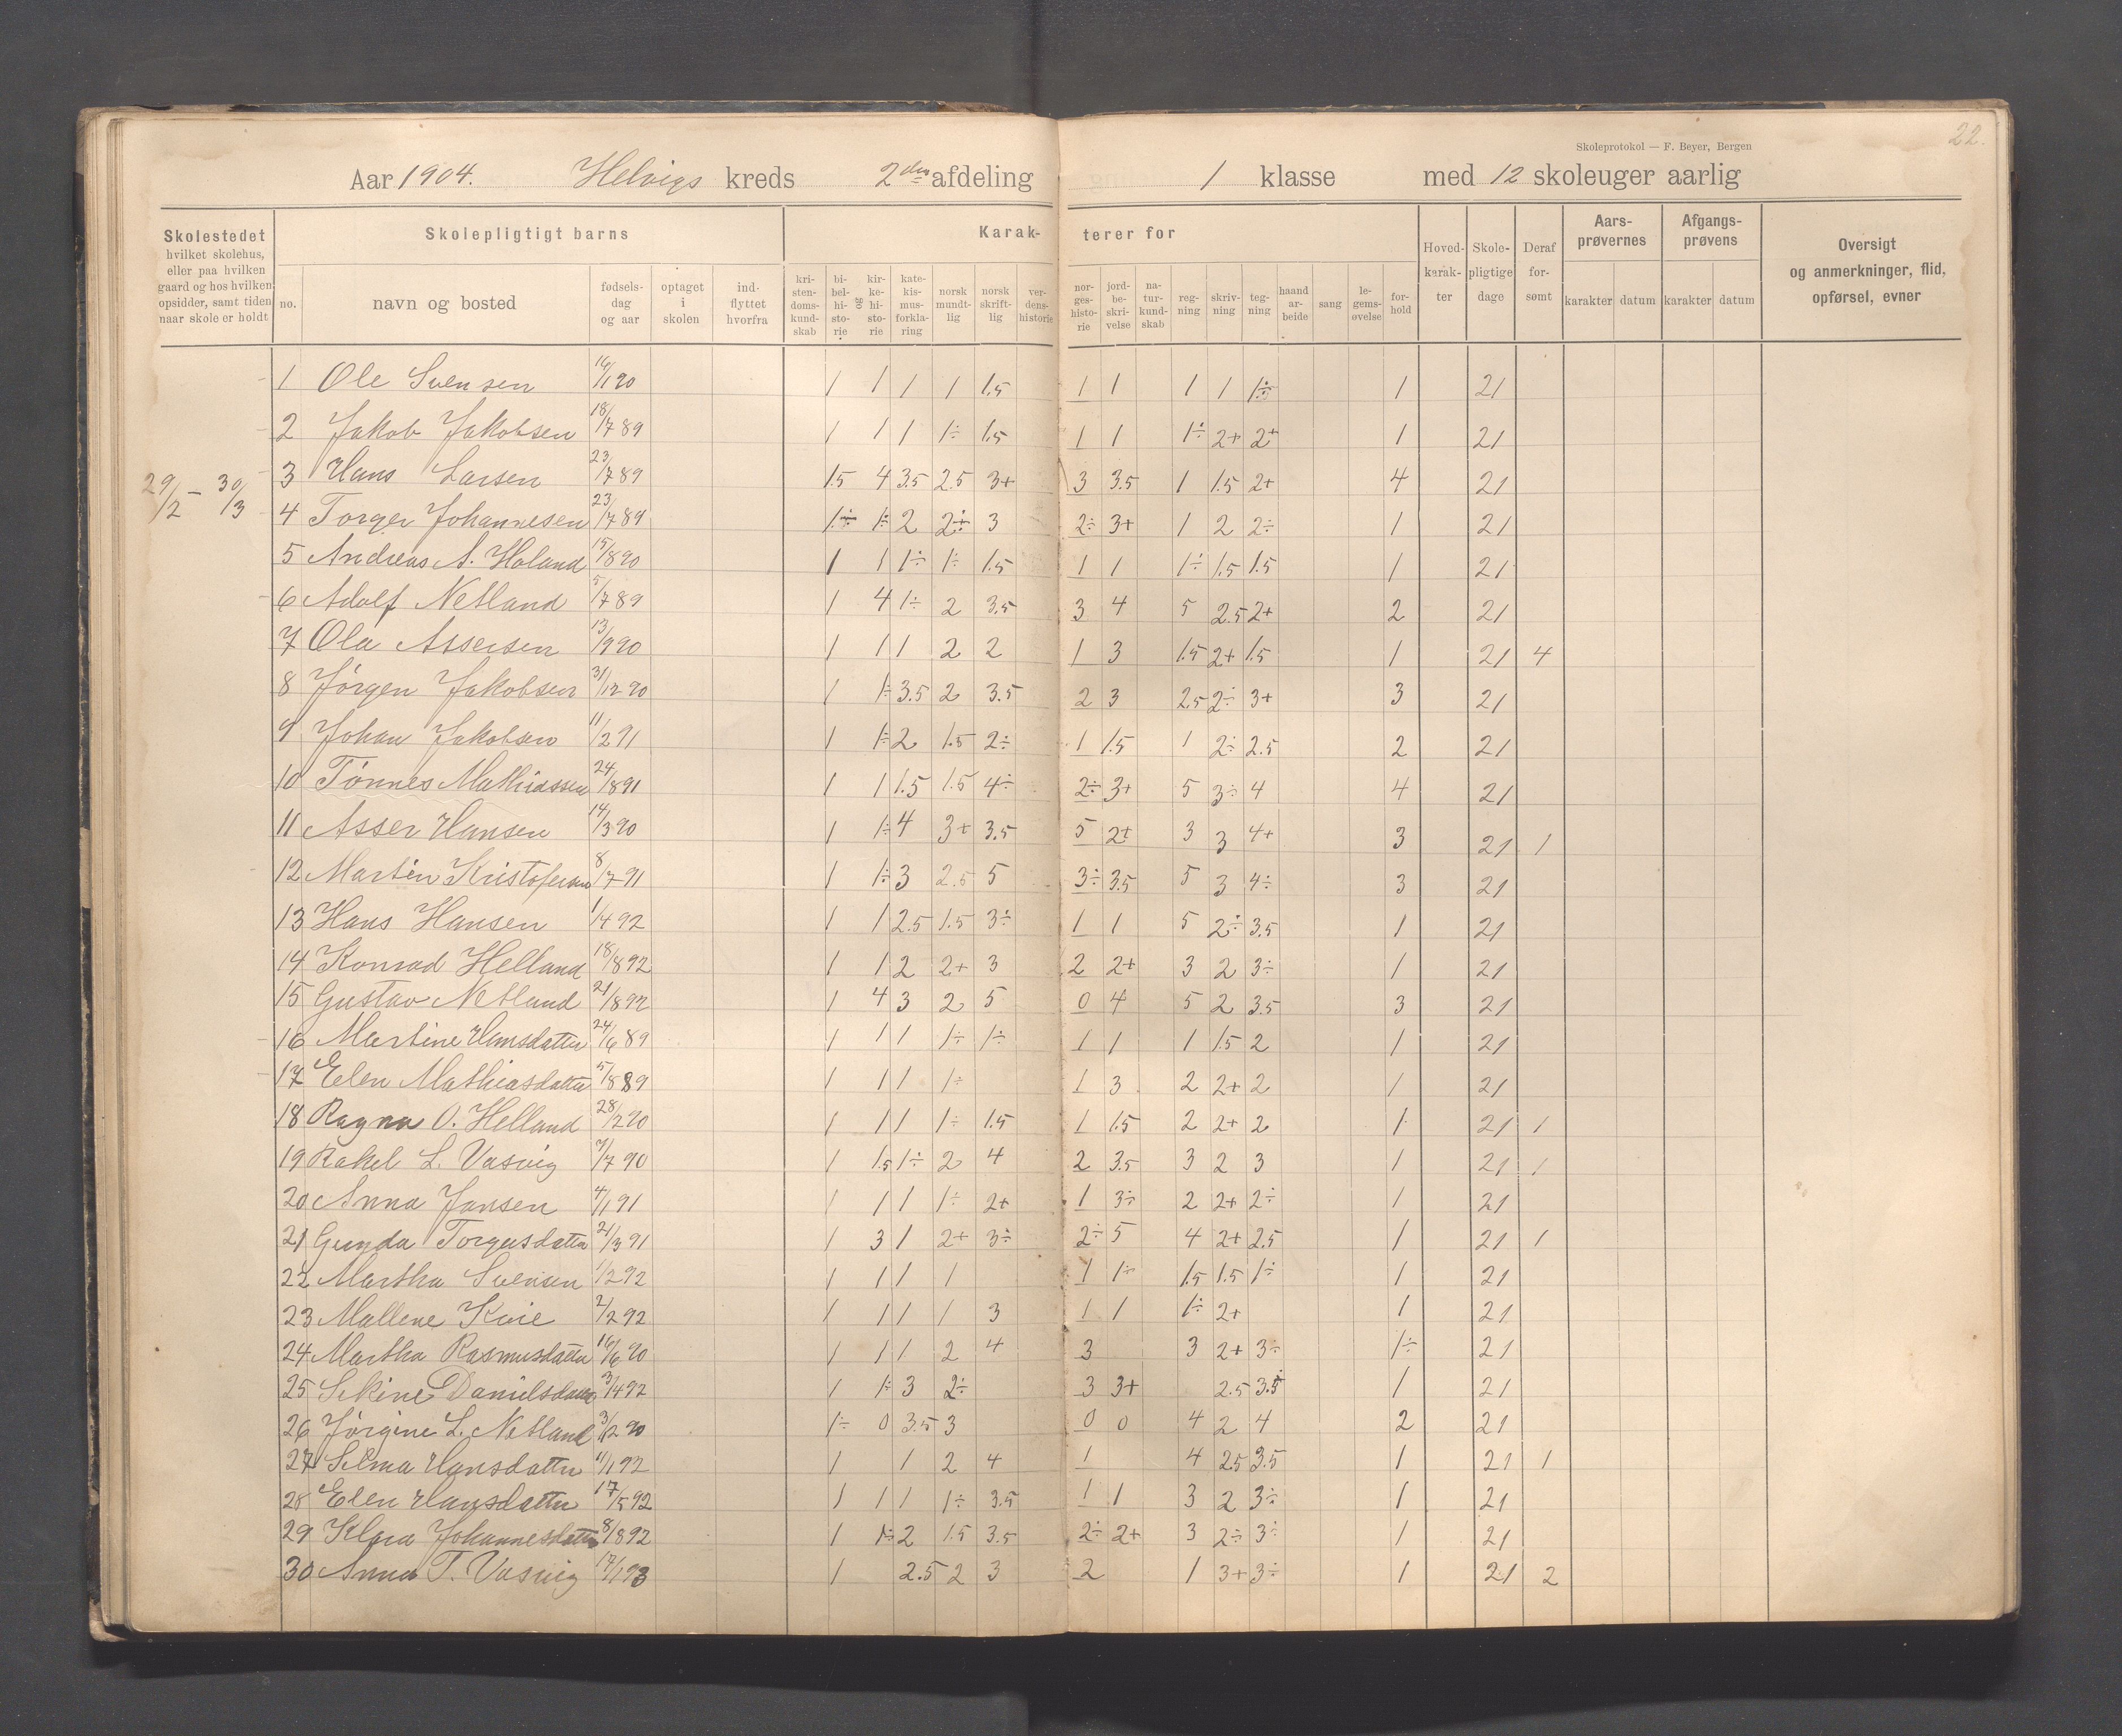 22.
Skoleprotokol — F. Beyer, Bergen
Aar 1904. Helvigs kreds 2den afdeling 1 klasse med 12 skoleuger aarlig
Skolestedet hvilket skolehus, eller paa hvilken gaard og hos hvilken opsidder, samt tiden naar skole er holdt
Skolepligtigt barns
Karakterer for
Hovedkarakter
Skolepligtige dage
Deraf forsømt
Aarsprøvernes
Afgangsprøvens
Oversigt og anmerkninger, flid, opførsel, evner
no. navn og bosted fødselsdag og aar optaget i skolen indflyttet hvorfra kristendomskundskab bibelhistorie og kirkehistorie katekismusforklaring norsk mundtlig norsk skriftlig verdenshistorie norgeshistorie jordbeskrivelse naturkundskab regning skrivning tegning haandarbeide sang legemsøvelse forhold karakter datum karakter datum
29/2 – 30/3
1 Ole Svensen 16/1 90 1 1 1 1 1.5 1 1 1 1 1÷ 1 21
2 Jakob Jakobsen 18/7 89 1 1 1 1÷ 1.5 1 1 1÷ 2+ 2+ 1 21
3 Hans Larsen 23/7 89 1.5 4 3.5 2.5 3+ 3 3.5 1 1.5 2+ 4 21
4 Torger Johannesen 23/7 89 1÷ 1÷ 2 2÷ 3 2÷ 3+ 1 2 2÷ 1 21
5 Andreas A. Holand 15/8 90 1 1 1÷ 1÷ 1.5 1 1 1÷ 1.5 1.5 1 21
6 Adolf Netland 5/7 89 1 4 1÷ 2 3.5 3 4 5 2.5 2+ 2 21
7 Ola Assersen 13/9 90 1 1 1 2 2 1 3 1.5 2+ 1.5 1 21 4
8 Jörgen Jakobsen 31/12 90 1 1÷ 3.5 2 3.5 2 3 2.5 2÷ 3+ 3 21
9 Johan Jakobsen 11/2 91 1 1÷ 2 1.5 2÷ 1 1.5 1 2÷ 2.5 2 21
10 Tönnes Mathiassen 24/8 91 1 1 1.5 1.5 4÷ 2÷ 3+ 5 3÷ 4 4 21
11 Asser Hansen 14/3 90 1 1÷ 4 3+ 3.5 5 2+ 3 3 4+ 3 21 1
12 Martin Kristofersen 8/7 91 1 1÷ 3 2.5 5 3÷ 3.5 5 3 4÷ 3 21
13 Hans Hansen 1/4 92 1 1 2.5 1.5 3÷ 1 1 5 2÷ 3.5 1 21
14 Konrad Helland 18/8 92 1 1 2 2+ 3 2 2+ 3 2 3÷ 1 21
15 Gustav Netland 21/8 92 1 4 3 2 5 0 4 5 2 3.5 3 21
16 Martine Hansdatter 24/6 89 1 1 1 1÷ 1÷ 1 1 1 1.5 2 1 21
17 Elen Mathiasdatter 5/8 89 1 1 1 1÷ 1 3 2 2+ 2 1 21
18 Ragna O. Helland 28/2 90 1 1 1 1÷ 1.5 1 1.5 2 2+ 2 1 21 1
19 Rakel L. Vasvig 9/7 90 1 1.5 1÷ 2 4 2 3.5 3 2 3 1 21 1
20 Anna Jansen 4/1 91 1 1 1 1÷ 2+ 1 3÷ 2 2+ 2÷ 1 21
21 Gunda Torgersdatter 21/3 91 1 3 1 2+ 3÷ 2÷ 5 4 2+ 2.5 1 21 1
22 Martha Svensen 1/2 92 1 1 1 1 1 1÷ 1.5 1.5 1÷ 1 21
23 Mallene Kvie 2/2 92 1 1 1 1 3 1 1 1÷ 2+ 1 21
24 Martha Rasmusdatter 16/6 90 1 1 1 2 4 3 3 2+ 3÷ 1÷ 21
25 Sekine Danielsdatter 3/4 92 1 1÷ 3 2÷ 3 3+ 2.5 3.5 1 21
26 Jørgine L. Netland 3/12 90 1÷ 0 3.5 3 0 0 4 2 4 2 21
27 Selma Hansdatter 11/1 92 1 1 2 4 1 4 2.5 3.5 1 21 1
28 Elen Hansdatter 17/5 92 1 1 1 1÷ 3.5 1 1 3 2 3÷ 1 21
29 Klara Johannesdatter 8/8 92 1 1÷ 2 1.5 3.5 2÷ 2+ 3 2÷ 3÷ 1 21
30 Anna T. Vasvig 17/1 93 1 2.5 2 3 2 1 3+ 3÷ 1 21 2